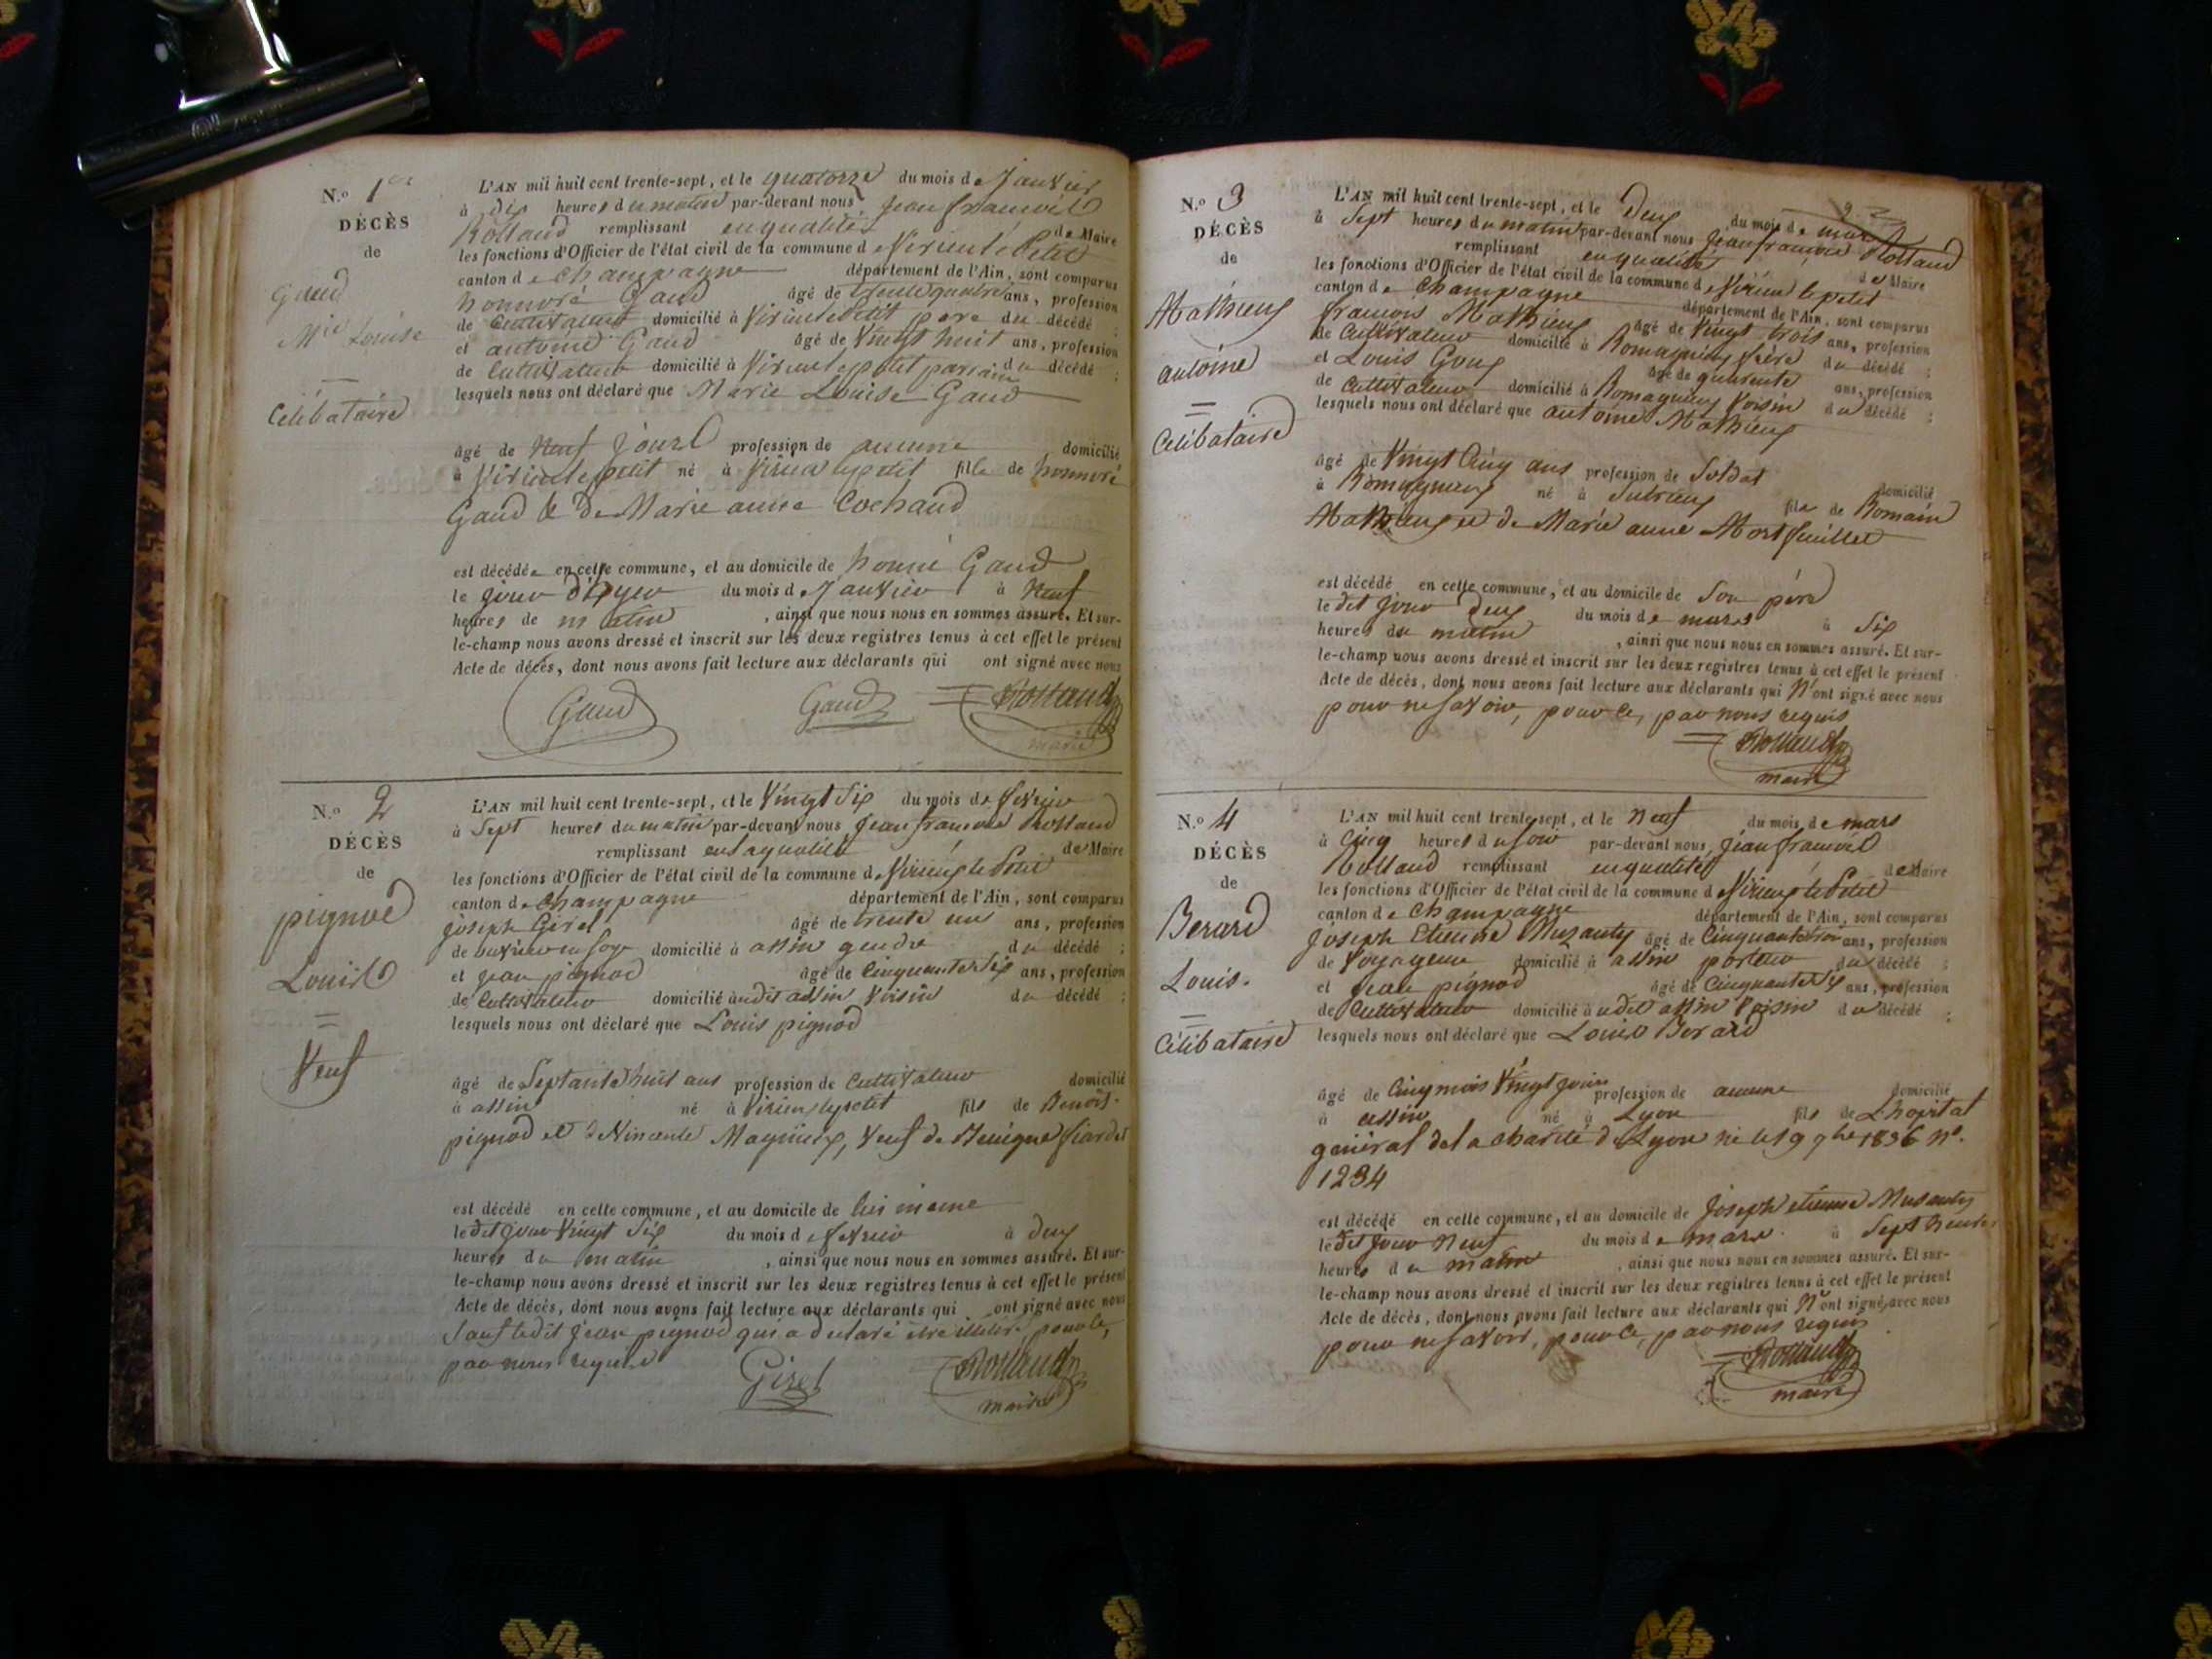 N.o 1er
DÉCÈS
de
Gaud
Mie Louise
Célibataire
L'AN mil huit cent trente-sept, et le quatorze du mois de Janvier
à dix heures du matin par-devant nous Jean françois
Rolland remplissant en qualité de Maire
les fonctions d'Officier de l'état civil de la commune de Virieu le Petit
canton de Champagne département de l'Ain, sont comparus
honnoré Gaud âgé de trente quatre ans, profession
de Cultivateur domicilié à Virieu le petit pere du décédé ;
et antoine Gaud âgé de Vingt huit ans, profession
de Cultivateur domicilié à Virieu le petit parrain du décédé ;
lesquels nous ont déclaré que Marie Louise Gaud
âgé de Neuf jours profession de aucune domicilié
à Virieu le petit né à Virieu le petit fille de honnoré
Gaud & de Marie anne Cochand
est décédée en cette commune, et au domicile de honoré Gaud
le jour d'hyer du mois de Janvier à Neuf
heures de matin , ainsi que nous nous en sommes assuré. Et sur-
le-champ nous avons dressé et inscrit sur les deux registres tenus à cet effet le présent
Acte de décès, dont nous avons fait lecture aux déclarants qui ont signé avec nous
Gaud Gaud Rolland
maire
N.o 2
DÉCÈS
de
pignod
Louis
Veuf
L'AN mil huit cent trente-sept, et le Vingt Six du mois de fevrier
à Sept heures du matin par-devant nous Jean françois Rolland
remplissant en sa qualité de Maire
les fonctions d'Officier de l'état civil de la commune de Virieux le Petit
canton de Champagne département de l'Ain, sont comparus
joseph Girel âgé de trente un ans, profession
de domicilié à assin gendre du décédé ;
et jean pignod âgé de Cinquante Six ans, profession
de Cultivateur domicilié audit assin Voisin du décédé ;
lesquels nous ont déclaré que Louis pignod
âgé de Septante huit ans profession de Cultivateur domicilié
à assin né à Virieux le petit fils de Benoit
pignod et de Vincente Maynieux, Veuf de Benigne
est décédé en cette commune, et au domicile de lui meme
le dit jour Vingt Six du mois de fevrier à deux
heures du matin , ainsi que nous nous en sommes assuré. Et sur-
le-champ nous avons dressé et inscrit sur les deux registres tenus à cet effet le présent
Acte de décès, dont nous avons fait lecture aux déclarants qui ont signé avec nous
Sauf ledit jean pignod qui a declaré être illitéré pour ce,
par nous requis
Girel Rolland
maire
N.o 3
DÉCÈS
de
Mathieux
antoine
Célibataire
L'AN mil huit cent trente-sept, et le Deux du mois de mars
à Sept heures du matin par-devant nous Jean françois Rolland
remplissant en qualité de Maire
les fonctions d'Officier de l'état civil de la commune de Virieu le petit
canton de Champagne département de l'Ain, sont comparus
françois Mathieux âgé de Vingt trois ans, profession
de Cultivateur domicilié à Romagnieux frère du décédé ;
et Louis Goux âgé de quarente ans, profession
de Cultivateur domicilié à Romagnieux Voisin du décédé ;
lesquels nous ont déclaré que antoine Mathieux
âgé de Vingt Cinq ans profession de Soldat domicilié
à Romagnieux né à Sutrieux fils de Romain
Mathieux et de Marie anne Mortfuillet
est décédé en cette commune, et au domicile de Son père
le dit jour Deux du mois de mars à Six
heures du matin , ainsi que nous nous en sommes assuré. Et sur-
le-champ nous avons dressé et inscrit sur les deux registres tenus à cet effet le présent
Acte de décès, dont nous avons fait lecture aux déclarants qui N'ont signé avec nous
pour ne Savoir, pour ce, par nous requis
Rolland
maire
N.o 4
DÉCÈS
de
Berard
Louis.
Célibataire
L'AN mil huit cent trente-sept, et le Neuf du mois de mars
à Cinq heures du soir par-devant nous Jean françois
Rolland remplissant en qualité de Maire
les fonctions d'Officier de l'état civil de la commune de Virieux le Petit
canton de Champagne département de l'Ain, sont comparus
Joseph Etienne Muzanty âgé de Cinquante trois ans, profession
de Voyageur domicilié à assin porteur du décédé ;
et Jean pignod âgé de Cinquante Six ans, profession
de Cultivateur domicilié audit assin Voisin du décédé ;
lesquels nous ont déclaré que Louis Berard
âgé de Cinq mois Vingt jours profession de aucune domicilié
à assin né à Lyon fils de L'hopital
général de la charité de Lyon né le 19 7bre 1836 No.
1234
est décédé en cette commune, et au domicile de Joseph etienne Musanty
le dit jour Neuf du mois de mars à Sept heures
heures du matin , ainsi que nous nous en sommes assuré. Et sur-
le-champ nous avons dressé et inscrit sur les deux registres tenus à cet effet le présent
Acte de décès, dont nous avons fait lecture aux déclarants qui N'ont signé avec nous
pour ne Savoir, pour ce, par nous requis
Rolland
maire